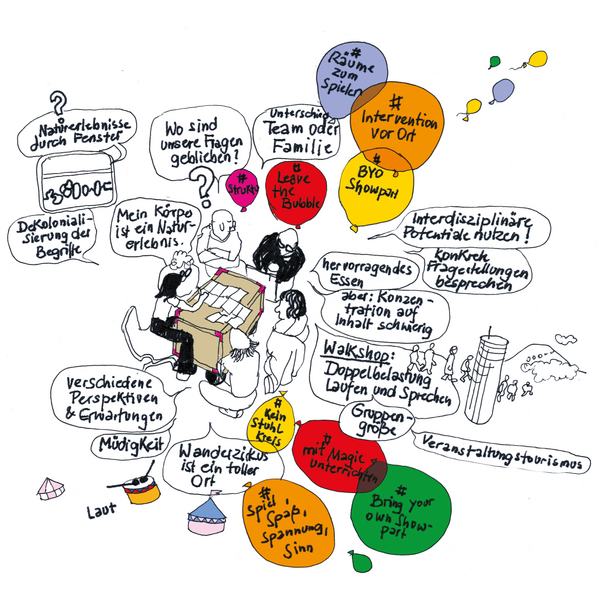 ?
Naturerlebnisse
durch Fenster
Wo sind
unsere Fragen
geblieben?
?
Unterschied
Team oder
Familie
#
Räume
zum
Spielen
#
Intervention
vor Ort
#
Struktur
#
Leave
the
Bubble
#
BYO
Showpart
DeKoloniali-
sierung der
Begriffe
Mein Körper
ist ein Natur-
erlebnis.
Interdisziplinäre
Potentiale nutzen!
Konkrete
Fragestellungen
besprechen
hervorragendes
Essen
aber: Konzen-
tration auf
Inhalt schwierig
Walkshop:
Doppelbelastung
Laufen und Sprechen
Gruppen-
größe
Veranstaltungstourismus
verschiedene
Perspektiven
& Erwartungen
Müdigkeit
Wanderzirkus
ist ein toller
Ort
Laut
#
Kein
Stuhl
Kreis
#
mit Magie
unterrichten
#
Spiel,
Spaß,
Spannung,
Sinn
#
Bring your
own Show-
part